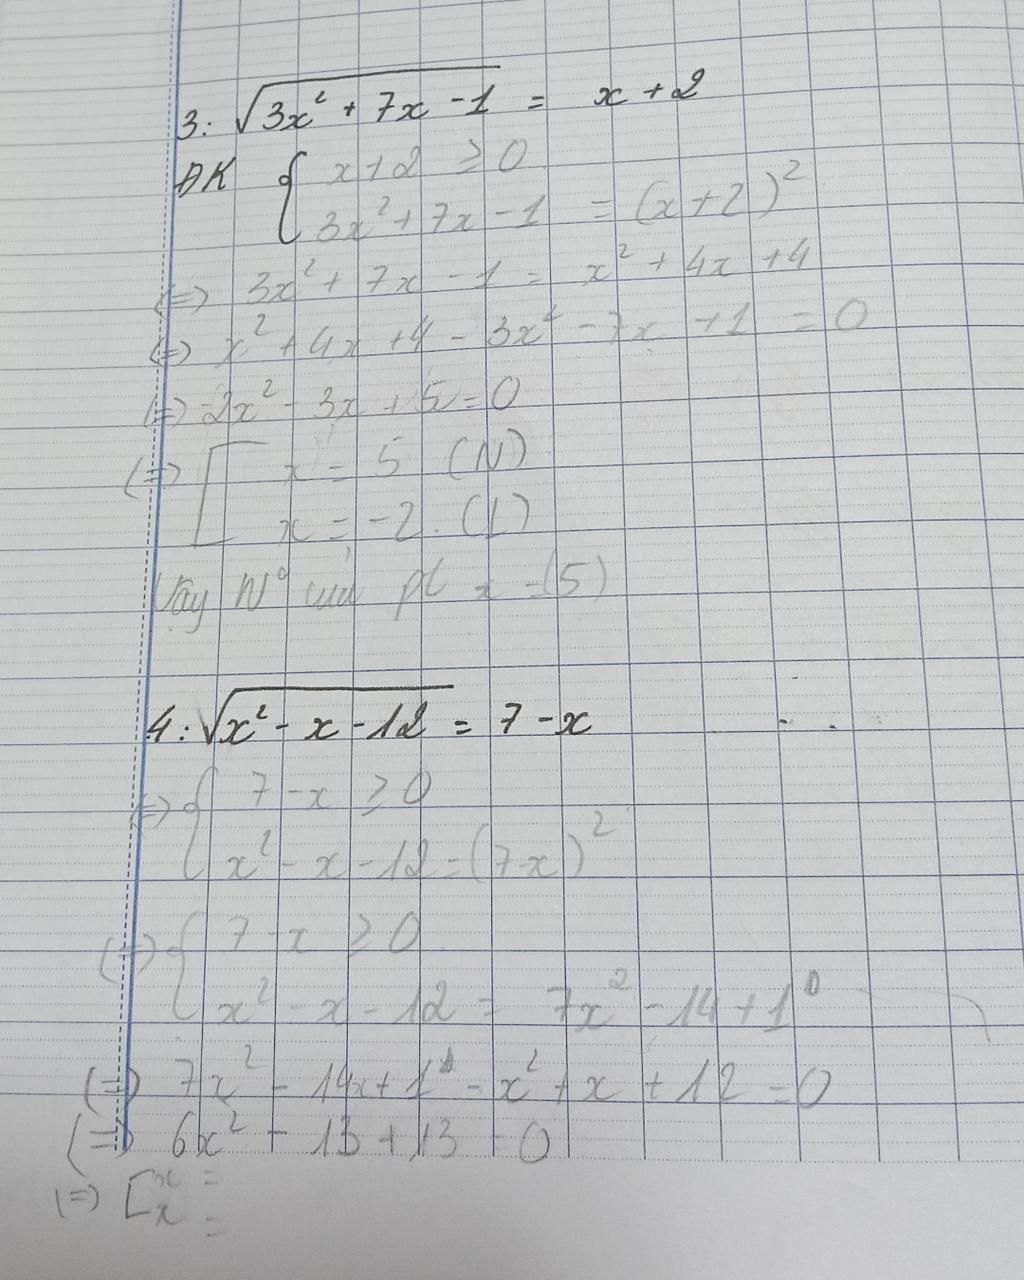 3: √(3x² + 7x - 1) = x + 2
ĐK { x + 2 ≥ 0
3x² + 7x - 1 = (x + 2)²
(=) 3x² + 7x - 1 = x² + 4x + 4
(=) x² + 4x + 4 - 3x² - 7x + 1 = 0
(=) -2x² - 3x + 5 = 0
(=) [ x = 5 (N)
x = -2. (L)
Vậy N⁰ của pt x = (5)
4: √(x² - x - 12) = 7 - x
(=) { 7 - x ≥ 0
x² - x - 12 = (7 - x)²
(=) { 7 - x ≥ 0
x² - x - 12 = 7x² - 14 + 1
(=) 7x² - 14x + 1 - x² + x + 12 = 0
(=) 6x² - 13 + 13 = 0
(=) [ x =
x =